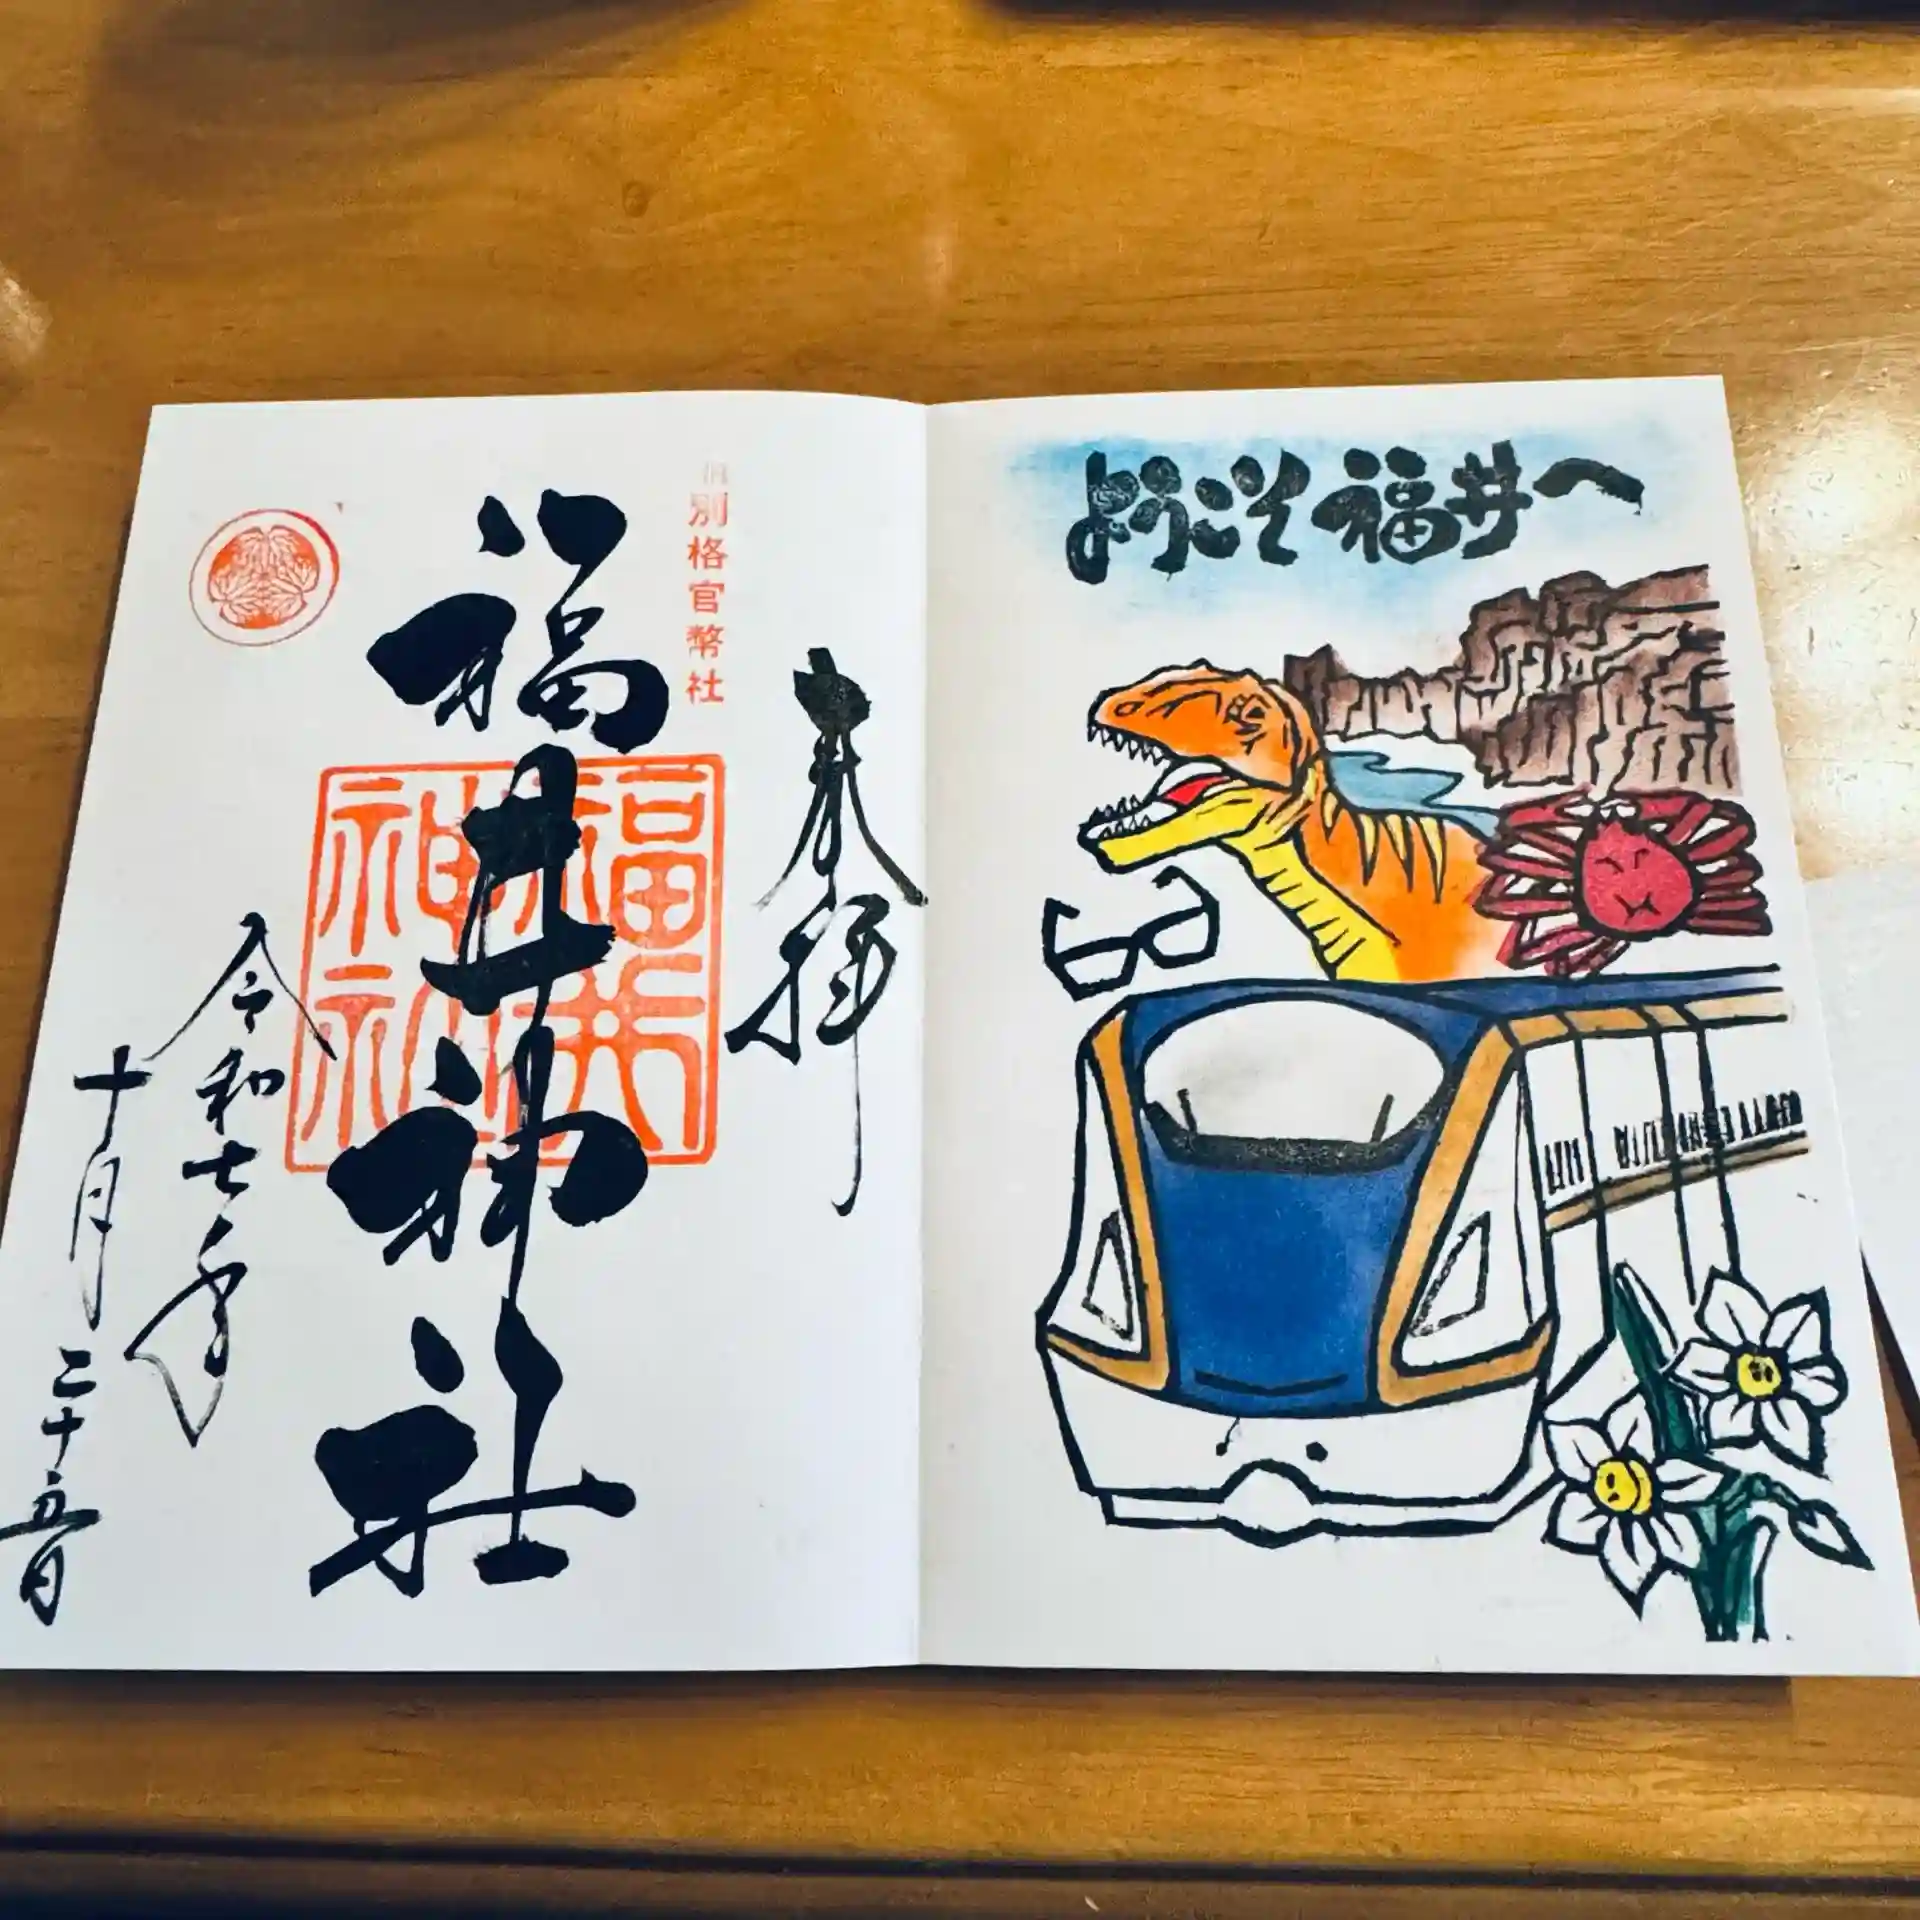 ようこそ福井へ
奉拝
旧別格官幣社
福井神社
福井神社
令和七年
十月二十五日